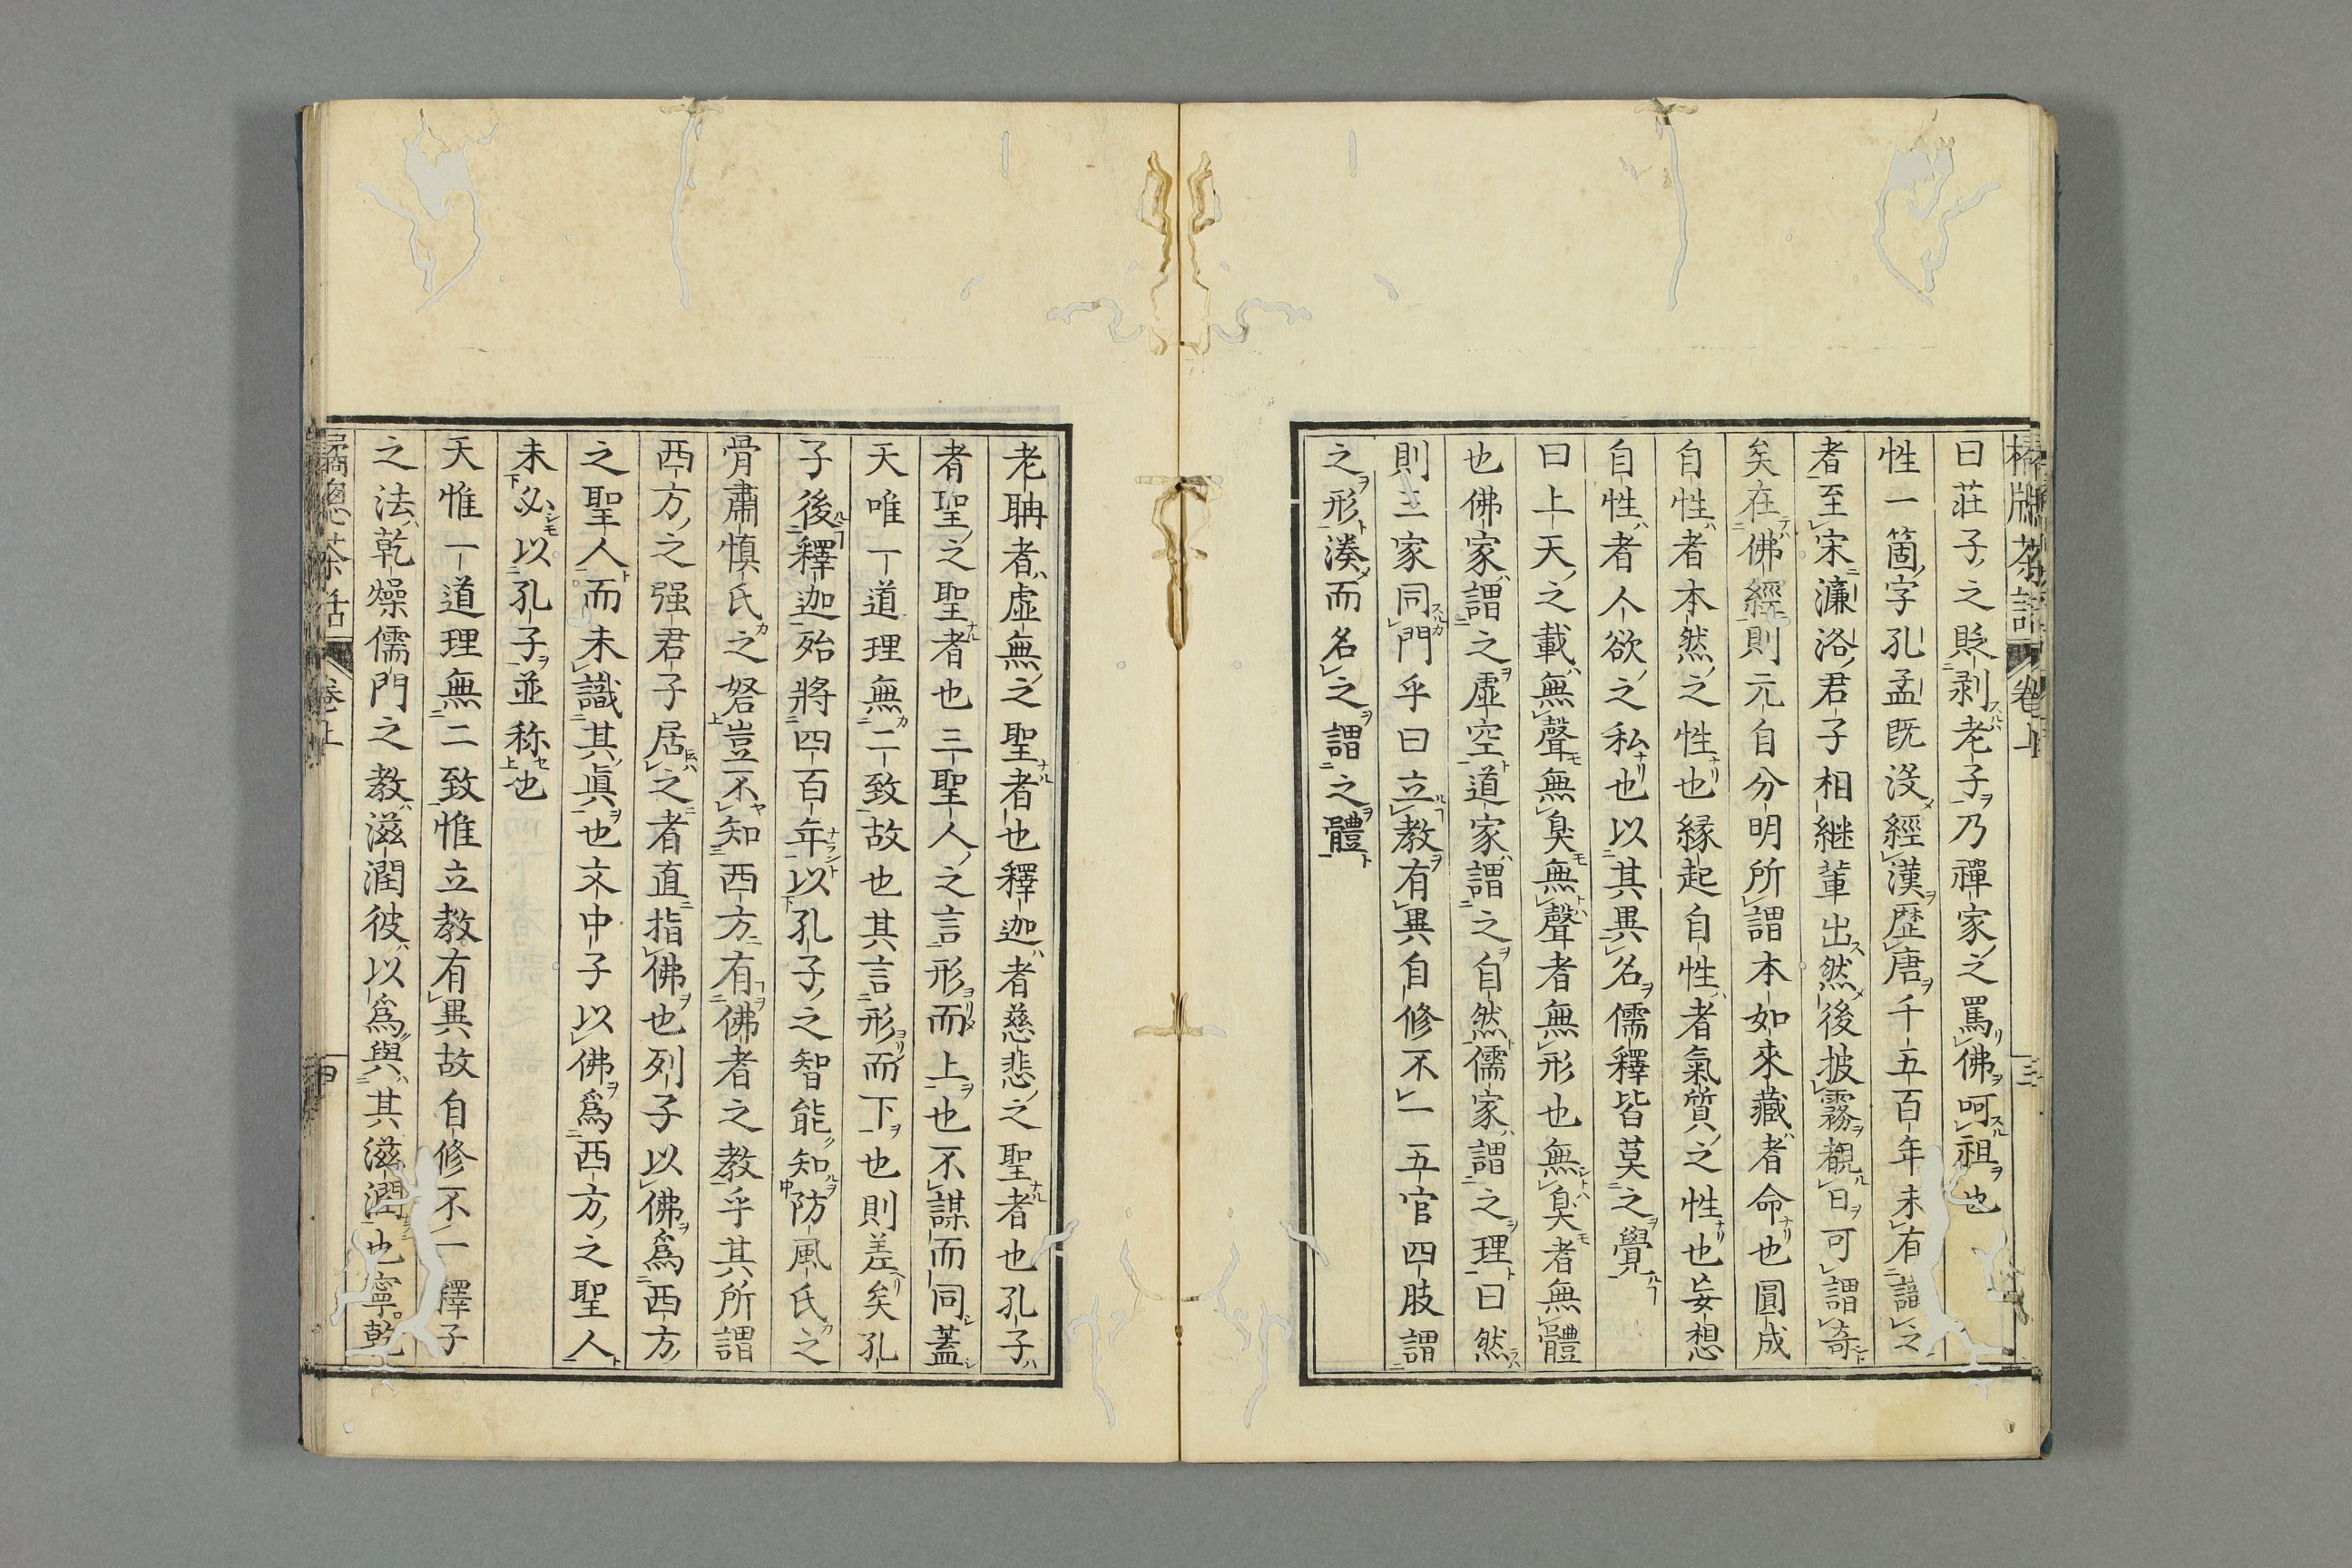 曰莊子之貶剥老子乃禪家之罵佛呵祖也
性一箇字孔孟既没經漢歴唐千五百年未有識之
者至宋濂洛君子相継輩出然後披霧覩日可謂奇
矣在佛經則元自分明所謂本如來藏者命也圓成
自性者本然之性也縁起自性者氣質之性也妄想
自性者人欲之私也以其異名儒釋皆莫之覺
曰上天之載無聲無臭無聲者無形也無臭者無體
也佛家謂之虚空道家謂之自然儒家謂之理曰然
則三家同門乎曰立教有異自修不一五官四肢謂
之形湊而名之謂之體
老聃者虚無之聖者也釋迦者慈悲之聖者也孔子
者聖之聖者也三聖人之言形而上也不謀而同蓋
天唯一道理無二致故也其言形而下也則差矣孔
子後釋迦殆將四百年以孔子之智能知防風氏之
骨肅慎氏之砮豈不知西方有佛者之教乎其所謂
西方之强君子居之者直指佛也列子以佛爲西方
之聖人而未識其眞也文中子以佛爲西方之聖人
未必以孔子並称也
天惟一道理無二致惟立教有異故自修不一釋子
之法乾燥儒門之教滋潤彼以爲與其滋潤也寧乾
卷上